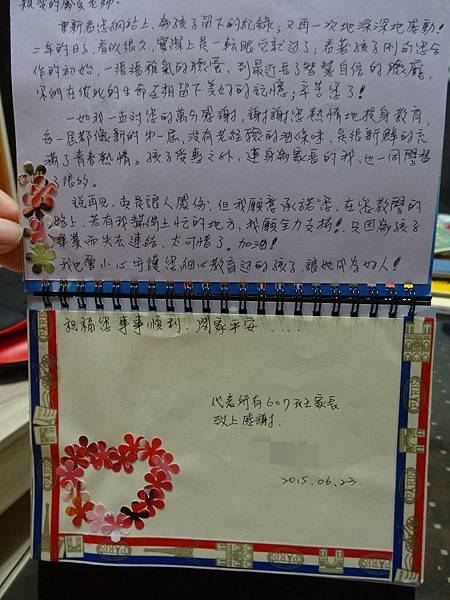 親愛的 老師:
重新看您網站上,為孩子留下的紀錄;又再一次地深深地感動!
二年的日子,看似很久,實際上是一轉眼就過了;看著孩子剛與您合
作的初始,一張張稚氣的臉龐,到最近長了智慧自信的臉龐,
他們在彼此的生命互相留下美好的記憶;辛苦您了!
一如我一直對您的萬分感謝,謝謝您熱情地投身教育,
每一屆都像新的第一屆,沒有老經驗的油條味,是很新鮮的充
滿了青春熱情。孩子受惠之外,連身為家長的我,也一同學習
了很多。
說再見,真是讓人感傷,但我願意承諾您,在您教學的
路上,若有我幫得上忙的地方,我願全力支持!只因為孩子
畢業而失去連結,太可惜了。加油!
我也會小心守護您細心教育過的孩子,讓她成為好人!
祝福您事事順利、闔家平安....
代表所有607班家長
致上感謝.
2015.06.23.
PARIS